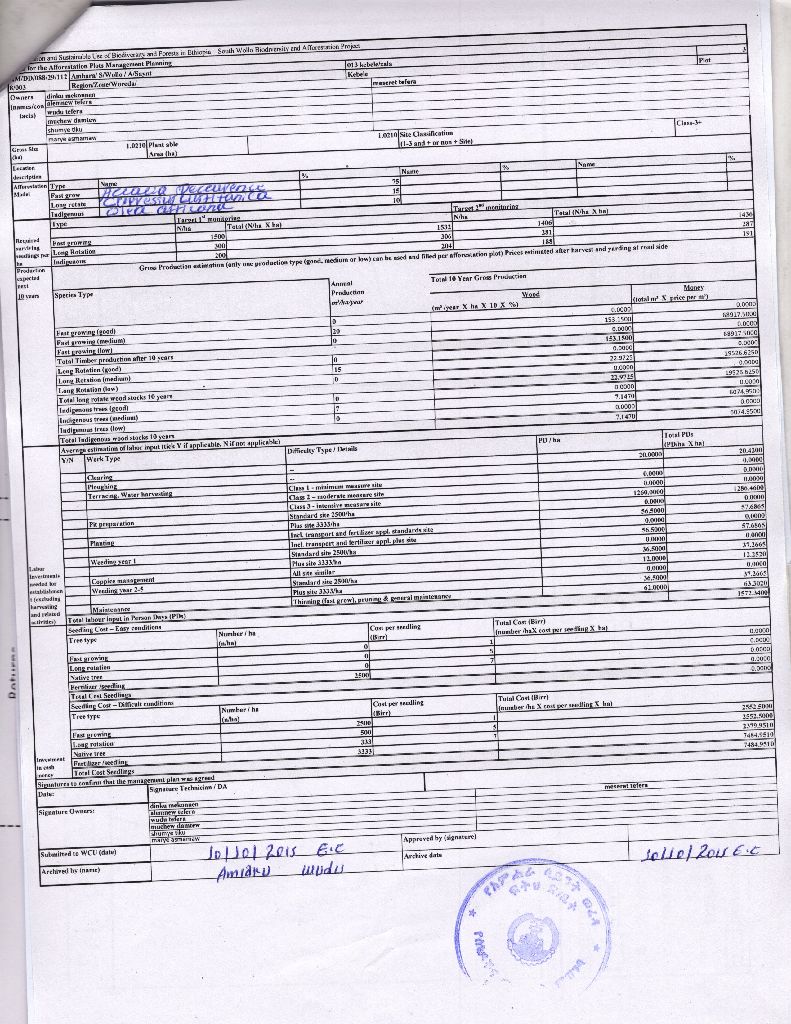 ion and Sustainable Use of Biodiversity and Forests in Ethiopia - South Wollo Biodiversity and Afforestation Project
for the Afforestation Plots Management Planning 3
AM/D(I)/088/29/112 Amhara/ S/Wollo / A/Saynt 013 kebele/zala
R/003 Region/Zone/Woreda/ Kebele Plot
Owners (names/con tacts) dinku mekonnen meseret tefera
alemnew tefera
wudu tefera
muchew damtew
shumye tiku
marye asmamaw
Gross Size (ha) 1.0210 Plant able Area (ha) 1.0210 Site Classification (1-3 and + or non + Site) Class-3+
Location description
Afforestation Model Type Name % Name % Name %
Fast grow Accacia Deccurence 75
Long rotate Cupressus lusitanica 15
Indigenous Olea africana 10
Type Target 1st monitoring Target 2nd monitoring
N/ha Total (N/ha X ha) N/ha Total (N/ha X ha)
Required surviving seedlings per ha Fast growing 1500 1531 1406 1436
Long Rotation 300 306 281 287
Indigenous 200 204 188 191
Gross Production estimation (only one production type (good, medium or low) can be used and filled per afforestation plot) Prices estimated after harvest and yarding at road side
Production expected next 10 years
Species Type Annual Production m³/ha/year Total 10 Year Gross Production
Wood Money
(m³ /year X ha X 10 X %) (total m³ X price per m³)
Fast growing (good) 0 0.0000 0.0000
Fast growing (medium) 20 153.1500 68917.5000
Fast growing (low) 0 0.0000 0.0000
Total Timber production after 10 years 153.1500 68917.5000
Long Rotation (good) 0 0.0000 0.0000
Long Rotation (medium) 15 22.9725 19526.6250
Long Rotation (low) 0 0.0000 0.0000
Total long rotate wood stocks 10 years 22.9725 19526.6250
Indigenous trees (good) 0 0.0000 0.0000
Indigenous trees (medium) 7 7.1470 6074.9500
Indigenous trees (low) 0 0.0000 0.0000
Total Indigenous wood stocks 10 years 7.1470 6074.9500
Average estimation of labor input (tick Y if applicable, N if not applicable)
Y/N Work Type Difficulty Type / Details PD / ha Total PDs (PD/ha X ha)
Clearing -- 20.0000 20.4200
Ploughing -- 0.0000
Terracing, Water harvesting Class 1 - minimum measure site 0.0000 0.0000
Class 2 - moderate measure site 0.0000 0.0000
Class 3 - intensive measure site 1260.0000 1286.4600
Pit preparation Standard site 2500/ha 0.0000 0.0000
Plus site 3333/ha 56.5000 57.6865
Planting Incl. transport and fertilizer appl. standards site 0.0000 0.0000
Incl. transport and fertilizer appl. plus site 56.5000 57.6865
Weeding year 1 Standard site 2500/ha 0.0000 0.0000
Plus site 3333/ha 36.5000 37.2665
Coppice management All site similar 12.0000 12.2520
Weeding year 2-5 Standard site 2500/ha 0.0000 0.0000
Plus site 3333/ha 36.5000 37.2665
Maintenance Thinning (fast grow), pruning & general maintenance 62.0000 63.3020
Total labour input in Person Days (PDs) 1572.3400
Labor Investments needed for establishmen t (excluding harvesting and related activities)
Seedling Cost - Easy conditions
Tree type Number / ha (n/ha) Cost per seedling (Birr) Total Cost (Birr) (number /haX cost per seedling X ha)
Fast growing 0 1 0.0000
Long rotation 0 5 0.0000
Native tree 0 7 0.0000
Fertilizer /seedling 2500 0.0000
Total Cost Seedlings 0.0000
Seedling Cost - Difficult conditions
Tree type Number / ha (n/ha) Cost per seedling (Birr) Total Cost (Birr) (number /ha X cost per seedling X ha)
Fast growing 2500 1 2552.5000
Long rotation 500 5 2552.5000
Native tree 333 7 2379.9510
Fertilizer /seedling 3333 7484.9510
Total Cost Seedlings 7484.9510
Investment in cash money
Signatures to confirm that the management plan was agreed
Date: Signature Technician / DA
Signature Owners: dinku mekonnen meseret tefera
alemnew tefera
wudu tefera
muchew damtew
shumye tiku
marye asmamaw
Submitted to WCU (date) 10/10/2015 E.C Approved by (signature)
Archived by (name) Amidku Wudu Archive date 10/10/2015 E.C